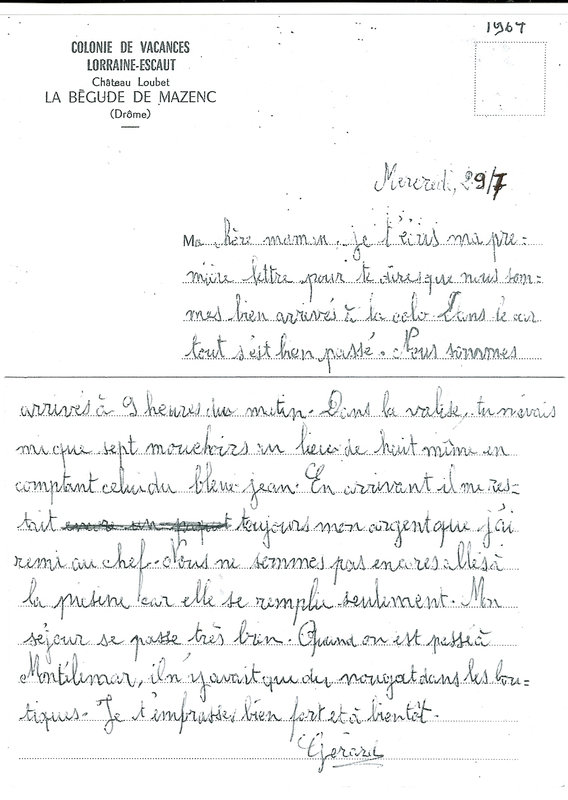 1964
COLONIE DE VACANCES
LORRAINE-ESCAUT
Château Loubet
LA BÉGUDE DE MAZENC
(Drôme)
Mercredi, 29/7
Ma chère maman, je t'écris ma pre-
mière lettre pour te dires que nous som-
mes bien arrivés à la colo. Dans le car
tout s'est bien passé. Nous sommes
arrivés à 9 heures du matin. Dans la valise, tu n'avais
mis que sept mouchoirs au lieu de huit même en
comptant celui du bleue jean. En arrivant il me res-
tait toujours mon argent que j'ai
remi au chef. Nous ne sommes pas encores allés à
la piscine car elle se remplie seulement. Mon
séjour se passe très bien. Quand on est passé à
Montélimar, il n'y avait que du nougat dans les bou-
tiques. Je t'embrasse bien fort et à bientôt.
Gérard